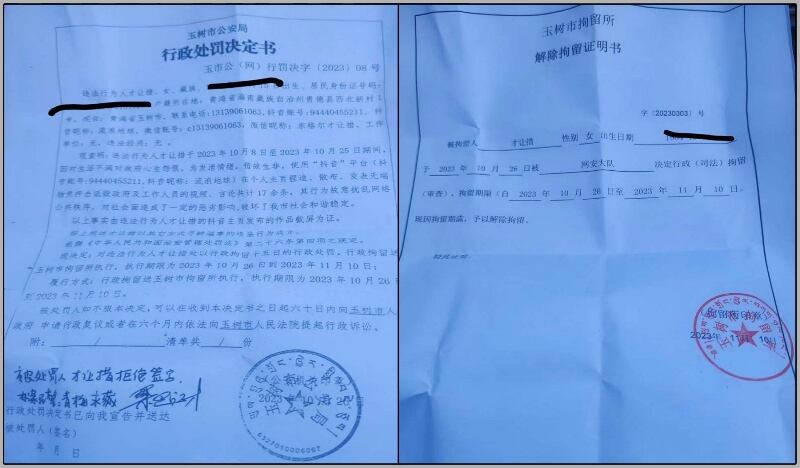 玉树市公安局
行政处罚决定书
玉市公（网）行罚决字〔2023〕08号
违法行为人才让措、女、藏族、
出生、居民身份证号码:
户籍所在地: 青海省海南藏族自治州贵德县西北新村
号, 现住: 青海省玉树市, 联系电话:13139061063, 抖音账号:94440455211, 抖
音昵称: 流浪地球, 微信账号: c13139061063, 微信昵称: 东格尔才让措、工作
单位: 无, 违法经历: 无。
现查明: 违法行为人才让措于2023年10月8日至2023年10月25日期间,
因对生活不满对政府心生怨恨, 为发泄情绪, 借故生非, 使用“抖音”平台（抖
音账号:94440455211, 抖音昵称: 流浪地球）在个人主页捏造、散布、发表无端
政府及工作人员的视频、言论共计17余条, 其行为故意扰乱网络
公共秩序, 对社会面造成了一定的恶劣影响, 破坏了我市社会和谐稳定。
以上事实由违法行为人才让措的抖音主页发布的作品截屏为证。
《中华人民共和国治安管理处罚法》第二十六条第四项之规定,
现决定: 对违法行为人才让措处以行政拘留十五日的行政处罚, 行政拘留送
玉树市拘留所执行, 执行期限为2023年10月26日至2023年11月10日;
履行方式: 行政拘留送玉树市拘留所执行, 执行期限为2023年10月26日
到2023年11月10日。
被处罚人如不服本决定, 可以在收到本决定书之日起六十日内向玉树市人民
政府 申请行政复议或者在六个月内依法向玉树市人民法院提起行政诉讼。
附: / 清单共 / 份
被处罚人才让措拒绝签字
2023年10月26
6327010006067
行政处罚决定书已向我宣告并送达
被处罚人（签名）
年 月 日
玉树市拘留所
解除拘留证明书
字〔20230303〕号
被拘留人 才让措 性别 女 出生日期
于 2023 年 10 月 26 日被 网安大队 决定行政（司法）拘留
（审查）, 拘留期限（自 2023 年 10 月 26 日至 2023 年 11 月 10 日。
现因拘留期满, 予以解除拘留。
特此证明
拘留所印章
2023年11月10日